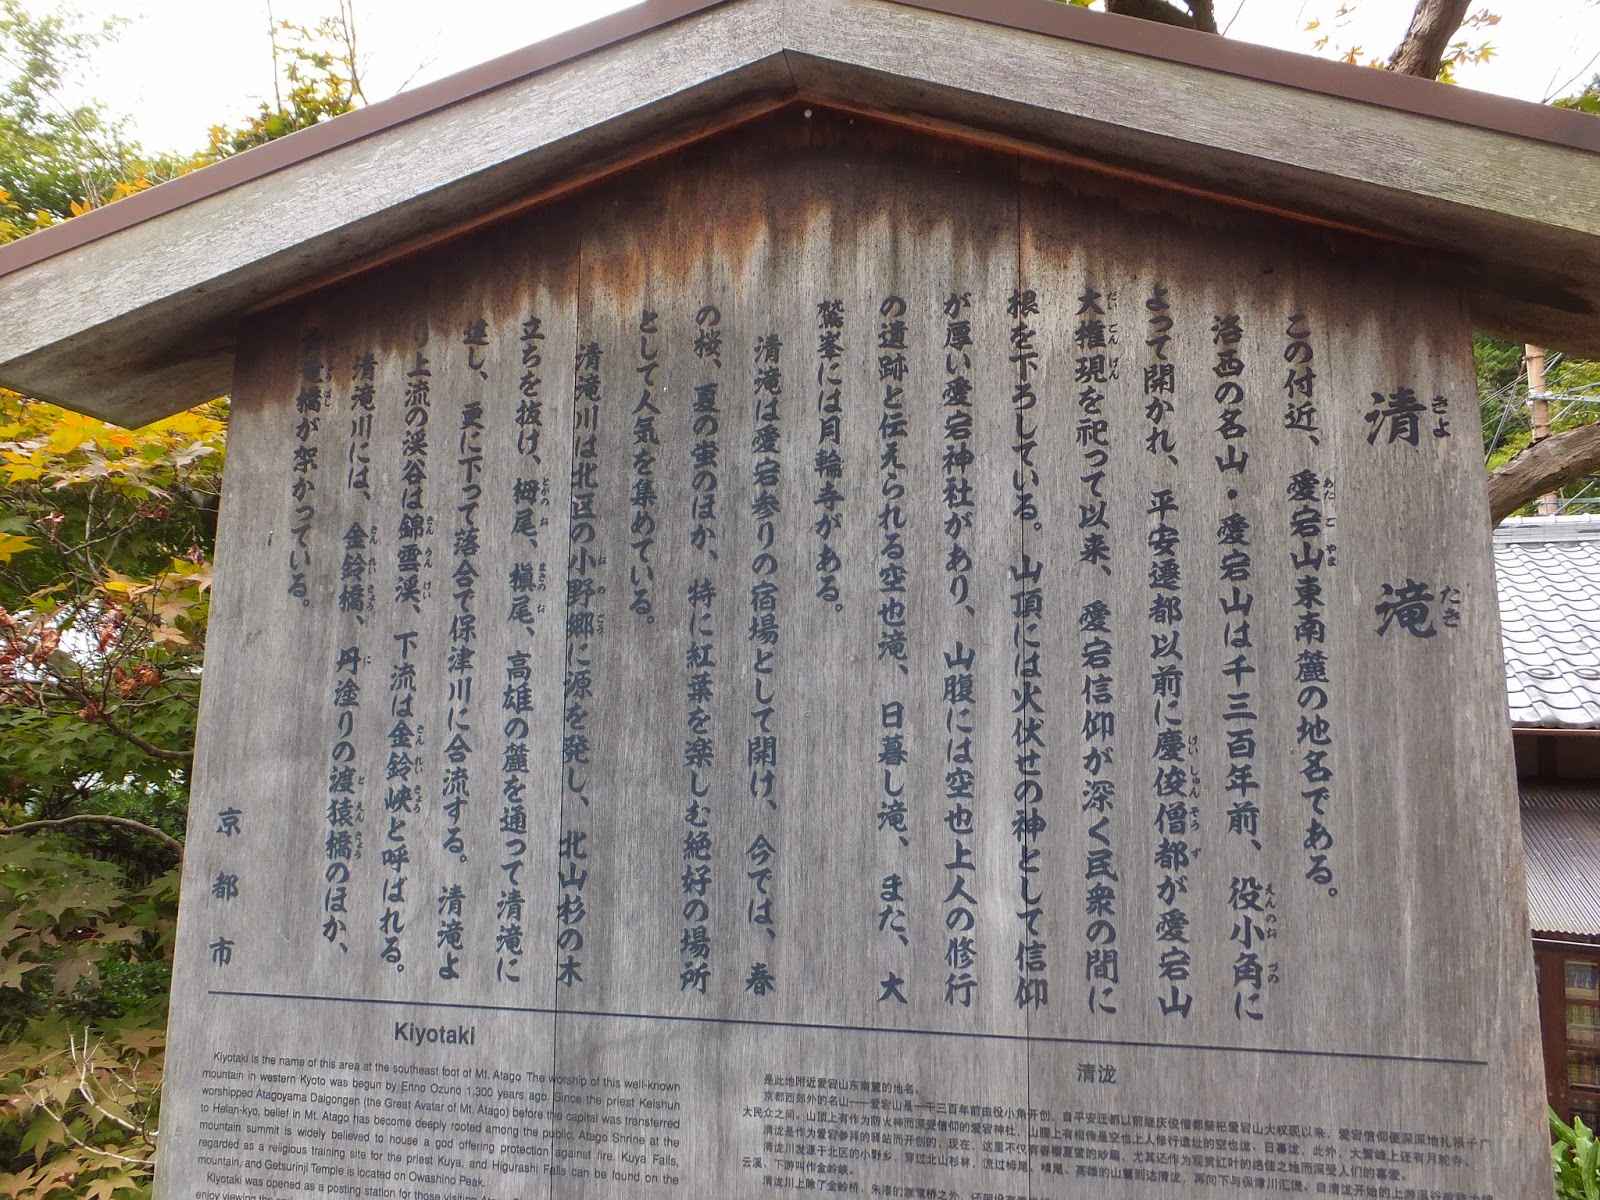 清滝
この付近、愛宕山東南麓の地名である。
洛西の名山・愛宕山は千三百年前、役小角に
よって開かれ、平安遷都以前に慶俊僧都が愛宕山
大権現を祀って以来、愛宕信仰が深く民衆の間に
根を下ろしている。山頂には火伏せの神として信仰
が厚い愛宕神社があり、山腹には空也上人の修行
の遺跡と伝えられる空也滝、日暮し滝、また、大
鷲峯には月輪寺がある。
清滝は愛宕参りの宿場として開け、今では、春
の桜、夏の蛍のほか、特に紅葉を楽しむ絶好の場所
として人気を集めている。
清滝川は北区の小野郷に源を発し、北山杉の木
立ちを抜け、栂尾、槇尾、高雄の麓を通って清滝に
達し、更に下って落合で保津川に合流する。清滝よ
り上流の渓谷は錦雲渓、下流は金鈴峡と呼ばれる。
清滝川には、金鈴橋、丹塗りの渡猿橋のほか、
橋が架かっている。
京都市
Kiyotaki
Kiyotaki is the name of this area at the southeast foot of Mt. Atago The worship of this well-known
mountain in western Kyoto was begun by Enno Ozuno 1,300 years ago. Since the priest Keishun
worshipped Atagoyama Daigongen (the Great Avatar of Mt. Atago) before the capital was transferred
to Heian-kyo, belief in Mt. Atago has become deeply rooted among the public. Atago Shrine at the
mountain summit is widely believed to house a god offering protection against fire. Kuya Falls,
regarded as a religious training site for the priest Kuya, and Higurashi Falls can be found on the
mountain, and Getsurinji Temple is located on Owashino Peak.
Kiyotaki was opened as a posting station for those visiting
enjoy viewing the
清泷
是此地附近爱宕山东南麓的地名。
京都西郊外的名山——爱宕山是一千三百年前由役小角开创，自平安迁都以前继庆俊僧都祭祀爱宕山大权现以来，爱宕信仰便深深地扎根于广
大民众之间。山顶上有作为防火神而深受信仰的爱宕神社，山腰上有相传是空也上人修行遗址的空也泷，日暮泷，此外，大鹫峰上还有月轮寺。
清泷是作为爱宕参拜的驿站而开创的，现在，这里不仅有春樱夏萤的妙趣，尤其还作为观赏红叶的绝佳之地而深受人们的喜爱。
清泷川发源于北区的小野乡，穿过北山杉林，流过栂尾、槙尾、高雄的山麓到达清泷，再向下与保津川汇流。自清泷开始的上游溪谷
云溪、下游叫作金岭峡。
清泷川上除了金岭桥、朱漆的渡猿桥之外，还